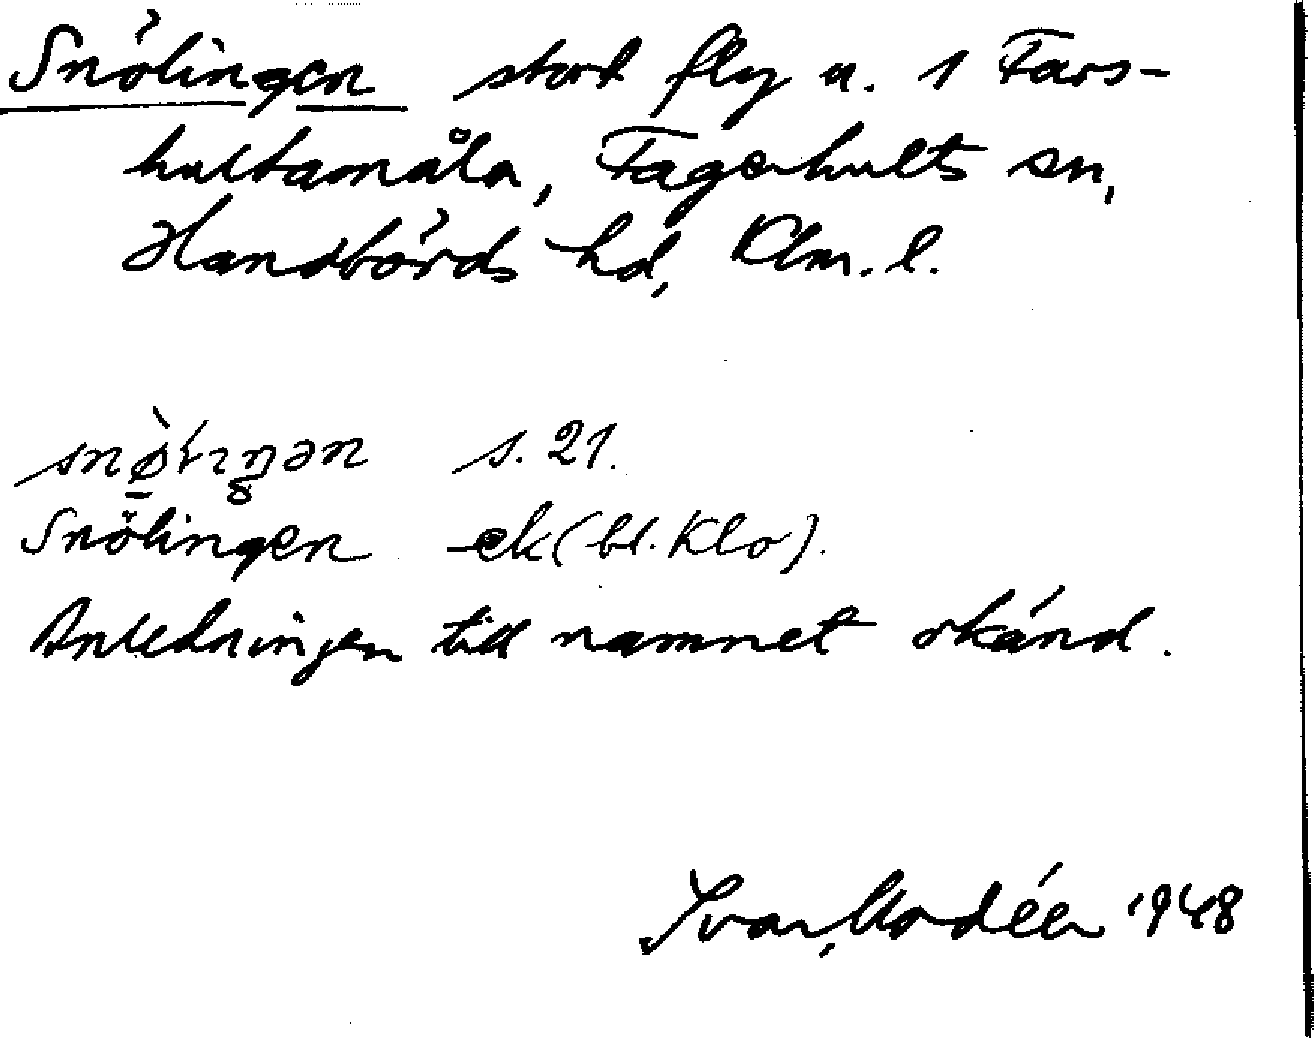 Snölingen stort fly u. 1 Fars-
hultamåla, Fagerhults sn,
Handbörds hd, Klm. l.
s. 21.
Snölingen ek (bl. Klo).
Anledningen till namnet okänd.
Ivar Modéer 1948